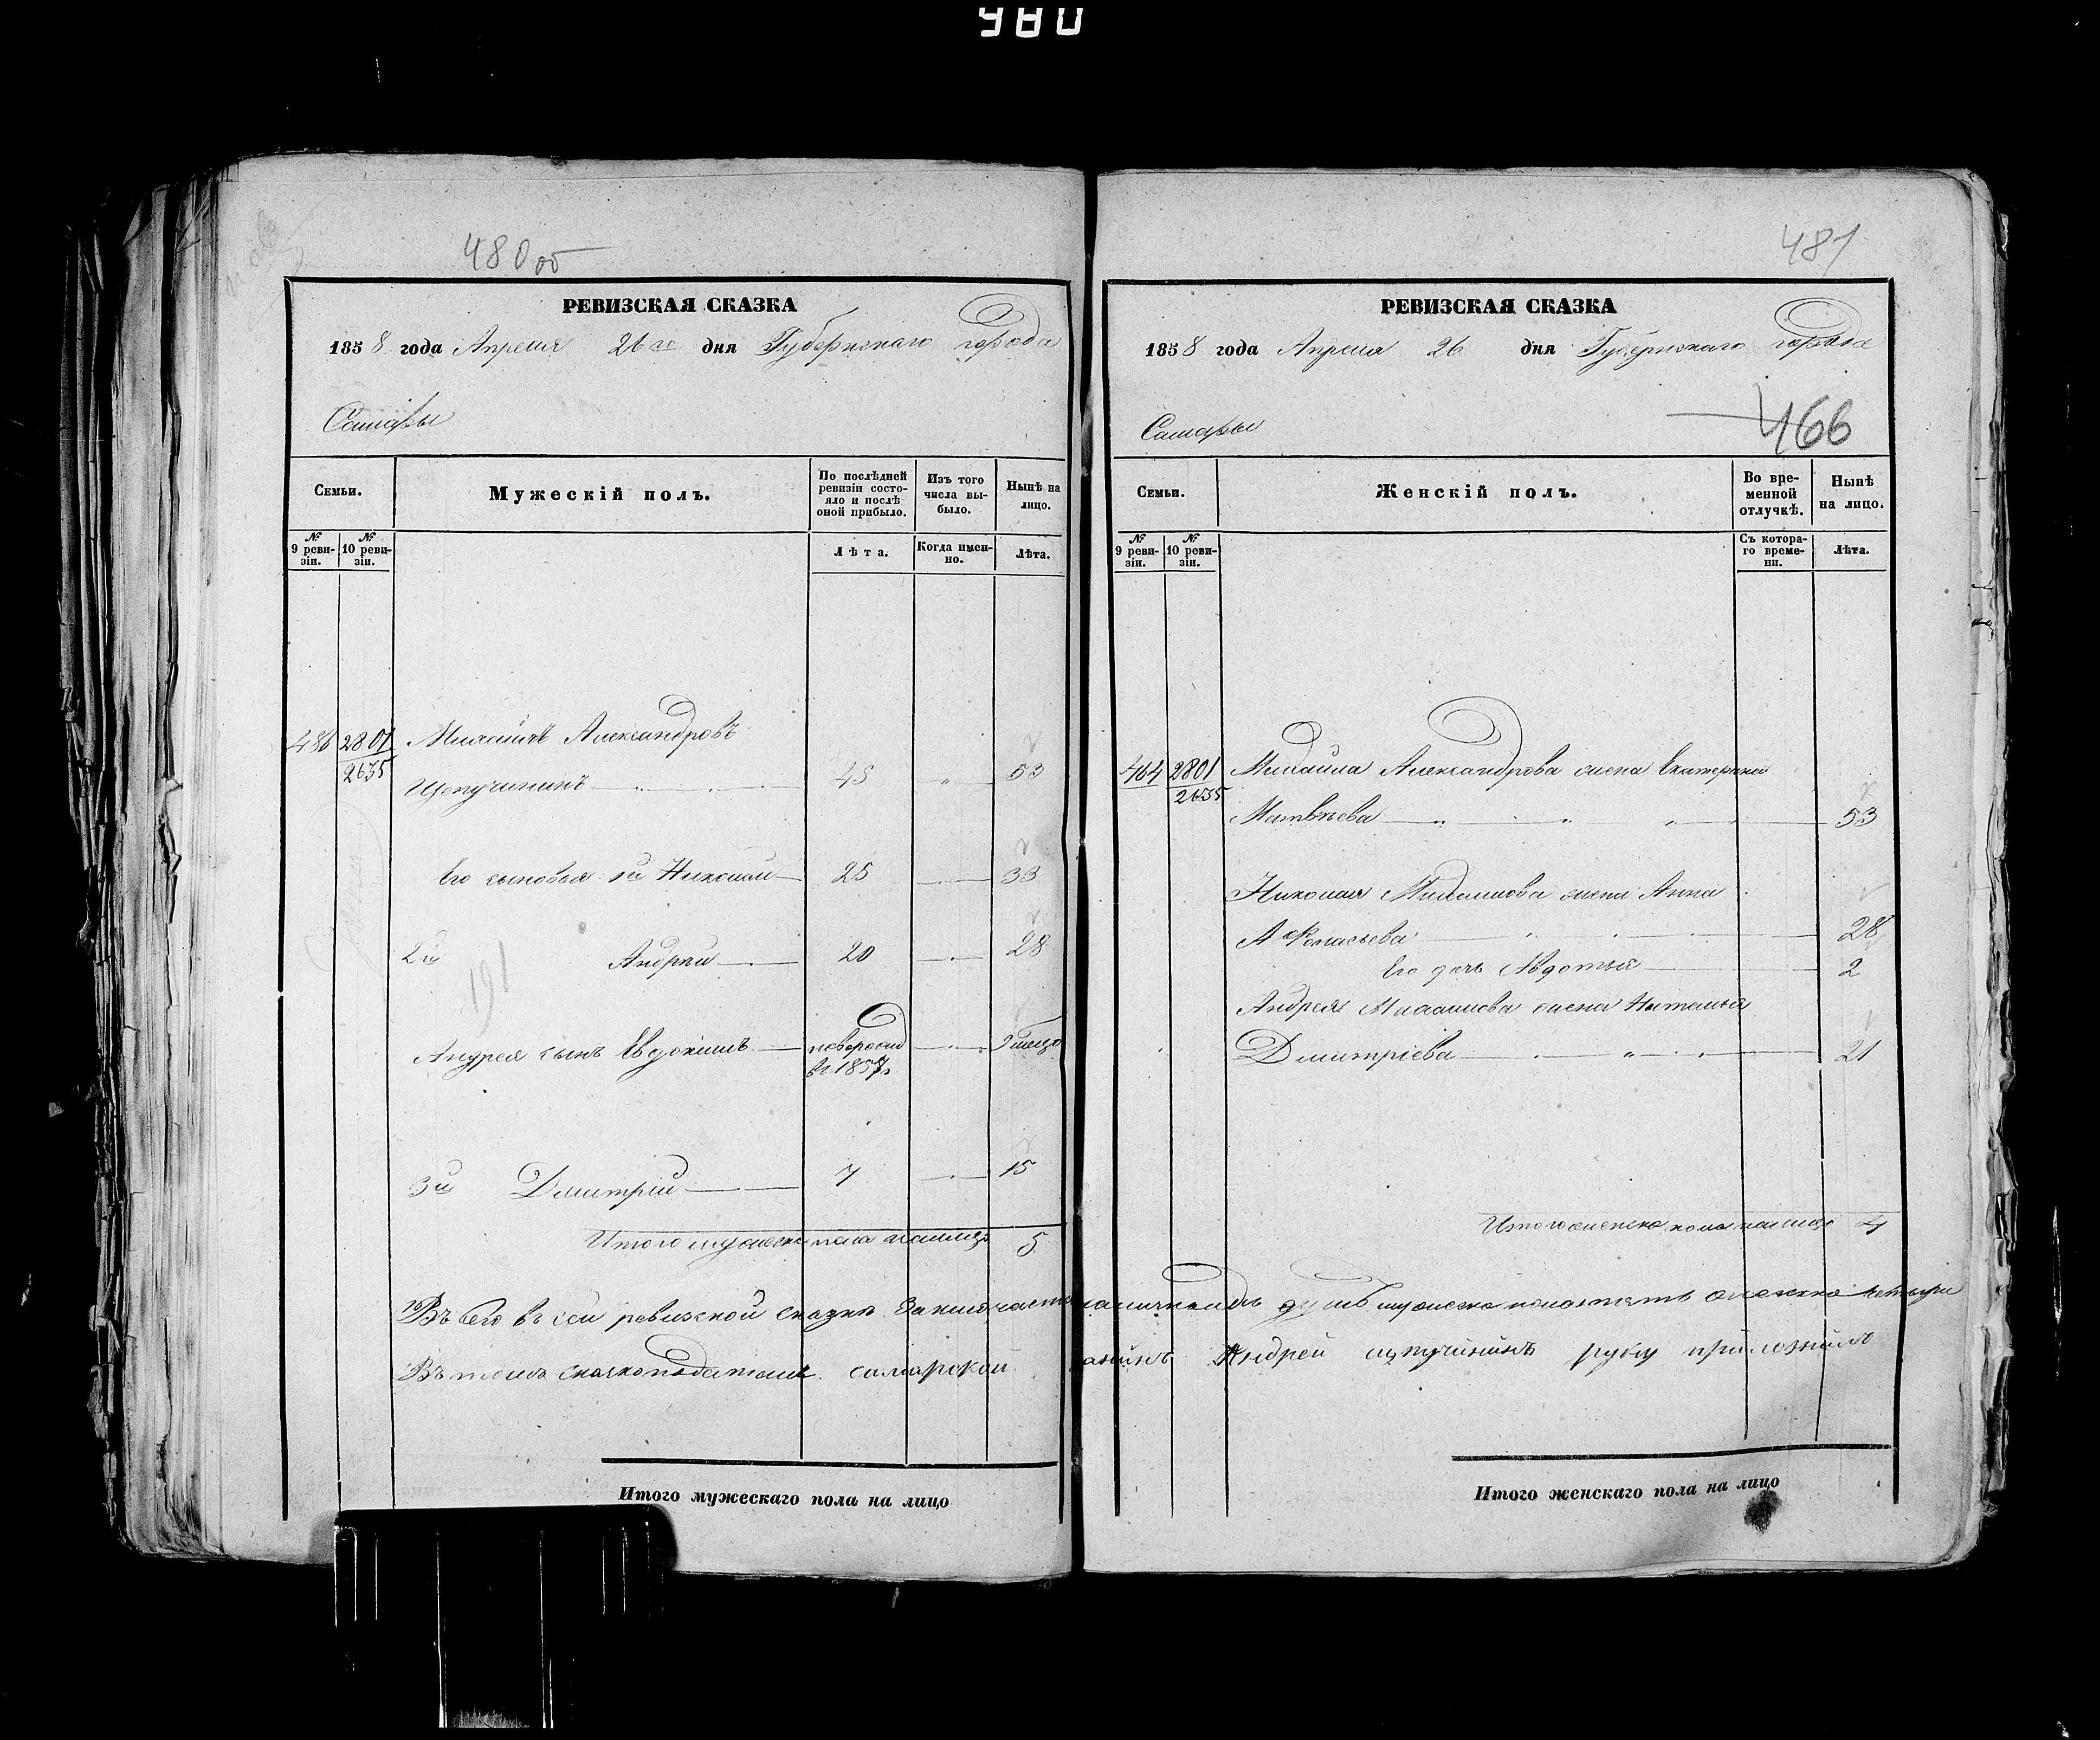 980
480 об
РЕВИЗСКАЯ СКАЗКА
1858 года Апреля 26го дня Губернскаго города
Самары
Семьи.
Мужескій полъ.
По послѣдней ревизіи состояло и послѣ оной прибыло.
Изъ того числа выбыло.
Нынѣ на лицо.
№ 9 ревизіи.
№ 10 ревизіи.
Лѣта.
Когда именно.
Лѣта.
486 2801 Александровъ
2635
Щепучининъ 45 53
Его сыновья 1й Николай 25 33
2й Андрей 20 28
191
Андрея сынъ Евдокимъ 9
въ 1857
3й Дмитрій 7 15
Итого мужеска пола на лицо 5
Въ сей ревизской сказки
Въ томъ самарской
Итого мужескаго пола на лицо
481
РЕВИЗСКАЯ СКАЗКА
1858 года Апреля 26 дня Губернскаго города
Самары
466
Семьи.
Женскій полъ.
Во временной отлучкѣ.
Нынѣ на лицо.
№ 9 ревизіи.
№ 10 ревизіи.
Съ котораго времени.
Лѣта.
464 2801 Михайла Александрова жена Екатерина
2635
Матвѣева 53
Николая Михайлова жена Анна
Афонасьева 28
Его дочь Авдотья 2
Андрея Михайлова жена Наталья
Дмитріева 21
Итого женска пола на лицо 4
душъ мужеска пола пять женска четыри
Андрей щпучининъ руку приложилъ
Итого женскаго пола на лицо